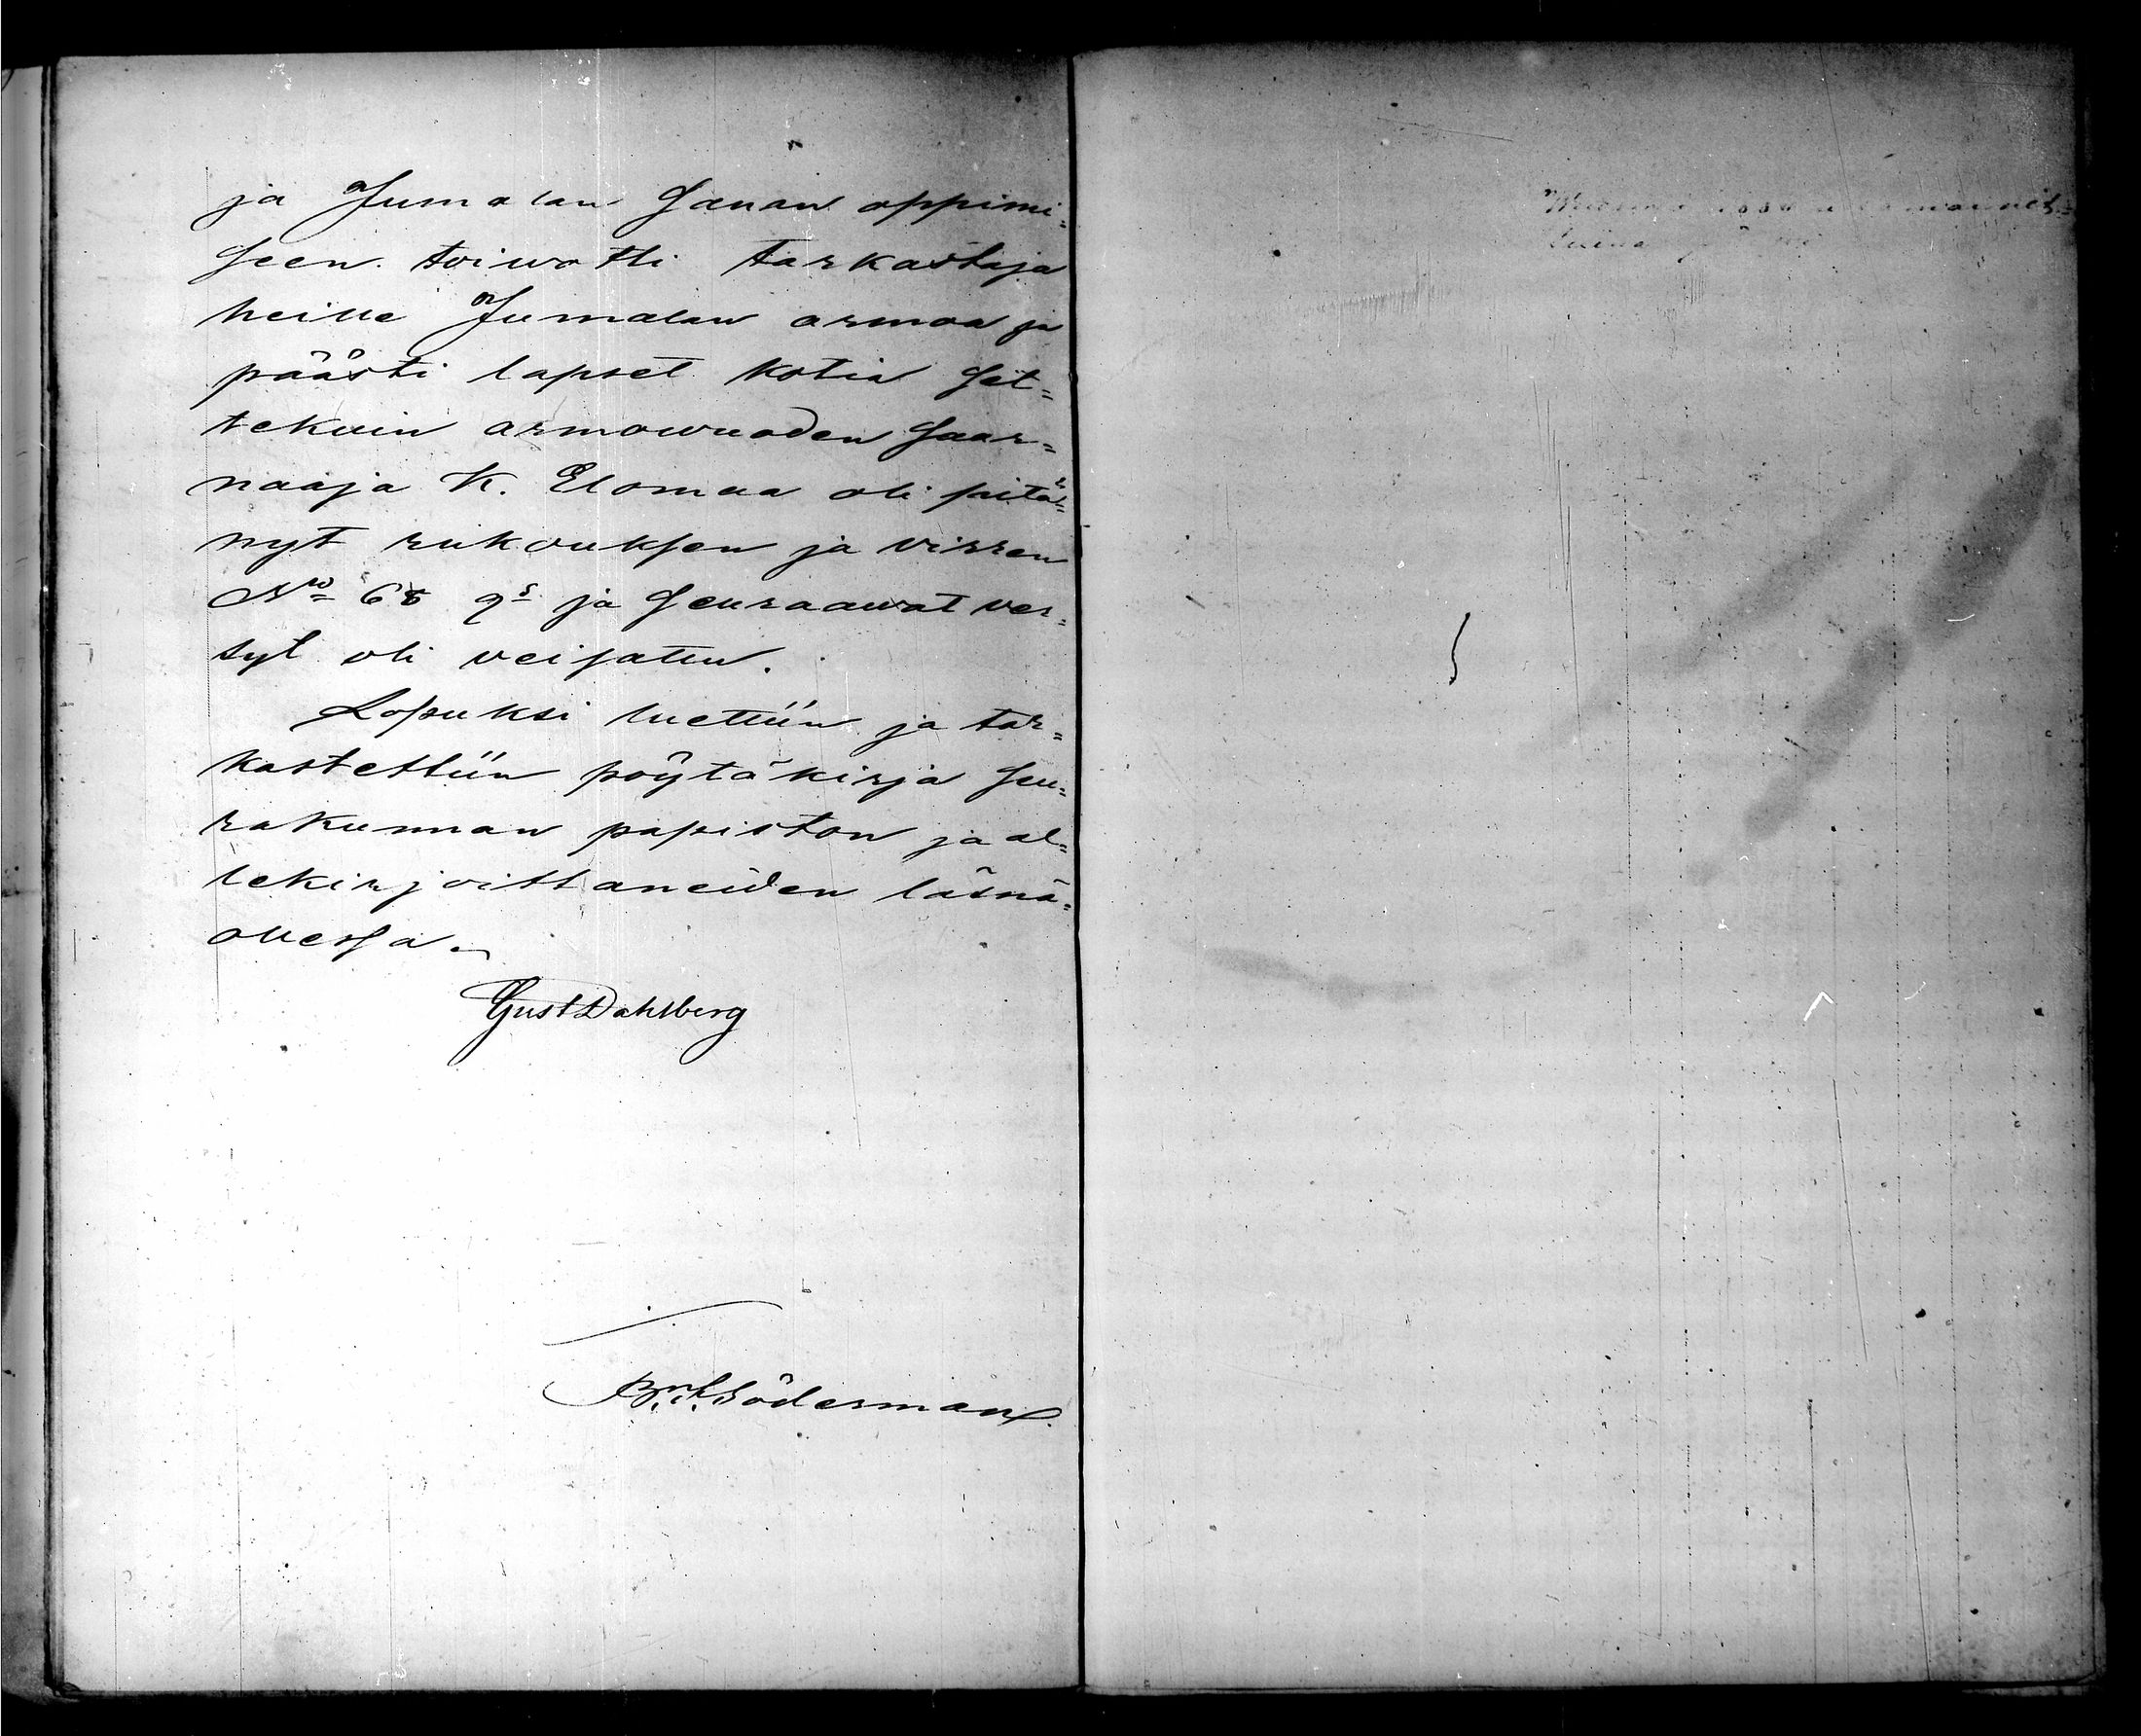 ja Jumalan Sanan oppimi=
seen toiwotti tarkastaja
heille Jumalan armoa ja
päästi lapset kotia set=
tekuin armowuoden saar=
naaja K. Elomaa oli pitä=
nyt rukouksen ja virren
Nro 68 9s ja seuraawat ver=
syt oli veisatun.
Lopuksi luettiin ja tar=
kastettiin pöytäkirja seu=
rakunnan papiston ja al=
lekirjoittaneiden läsnä=
ollessa.
Gust Dahlberg
Söderman.